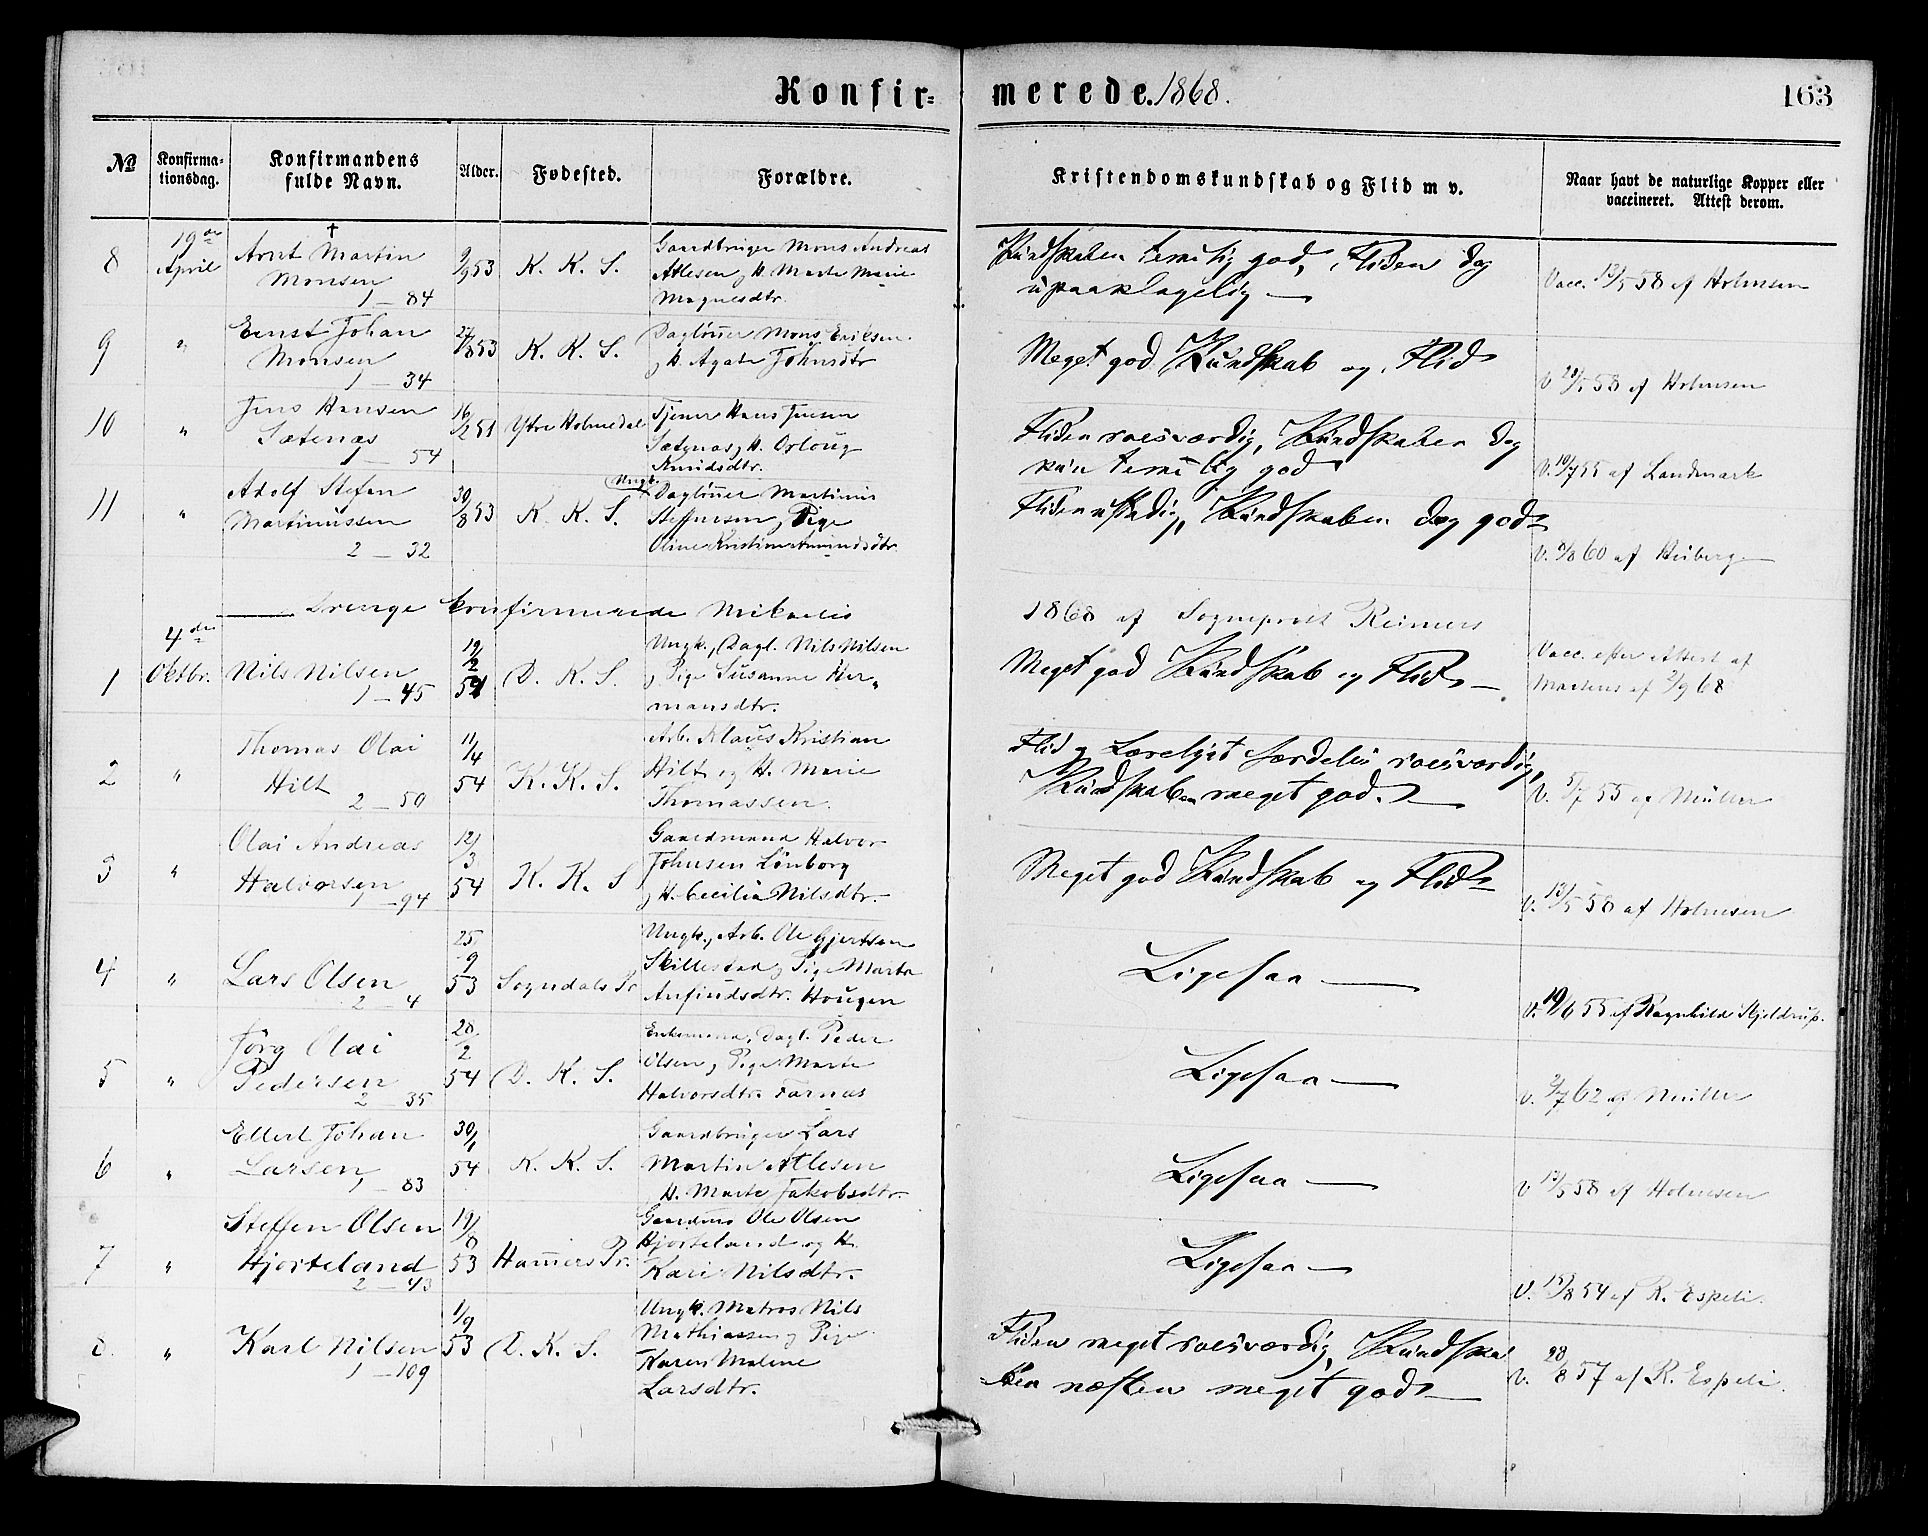 Konfirmerede. 1868.
163
No
Konfirmationsdag.
Konfirmandens fulde Navn.
Alder.
Fødested.
Forældre.
Kristendomskundskab og Flid m v.
Naar havt de naturlige Kopper eller vaccineret. Attest derom.
8
19de April
†
Arnt Martin
Monsen
1 — 84
9/9 53
K. K. S.
Gaardbruger Mons Andreas
Atlesen og H. Marte Marie
Magnesdtr.
Kundskaben temelig god, Fliden dog
upaaklagelig —
Vacc. 12/5 58 af Holmsen
9
"
Ernst Johan
Monsen
1 — 34
27/8 53
K. K. S.
Dagløner Mons Eriksen
og H. Agate Johnsdtr
Meget god Kundskab og Flid
V 20/5 58 af Holmsen
10
"
Jens Hansen
Sætenæs
1 — 54
16/2 51
Ytre Holmedal
Tjener Hans Jensen
Sætenæs og H. Orloug
Knudsdtr.
Fliden roesværdig, Kundskaben dog
kun temelig god
V. 10/7 55 af Landmark
11
"
Adolf Stefen
Martinussen
2 — 32
30/8 53
K. K. S.
Ungk.
Dagløner Martinus
Steffensen og Pige
Oline Kristine Amundsdtr.
Fliden ustadig, Kundskaben dog god
V. 9/8 60 af Heiberg
— Drenge konfirmerede Mikaelis
1868 af Sogneprest Reimers
1
4de Oktbr.
Nils Nilsen
1 — 45
19/2 54
D. K. S.
Ungk. Dagl. Nils Nilsen
og Pige Susanne Her-
mansdtr.
Meget god Kundskab og Flid —
Vacc. efter Attest af
Martens af 2/9 68
2
"
Thomas Olai
Hilt
2 — 50
11/4 54
K. K. S.
Arb. Klaus Kristian
Hilt og H. Marie
Thomassen.
Flid og Lærelyst særdeles roesværdig,
Kundskaben meget god. —
V. 5/7 55 af Müller
3
"
Olai Andreas
Halvorsen
1 — 94
12/3 54
K. K. S
Gaardmand Halvor
Johnsen Lönborg
og H. Cecilia Nilsdtr.
Meget god Kundskab og Flid
V. 13/5 58 af Holmsen
4
"
Lars Olsen
2 — 4
25/9 53
Sogndals Pr
Ungk. Arb. Ole Gjertsen
Skillestad og Pige Marta
Anfindsdtr. Hougen
Ligesaa —
V. 19/6 55 af Ragnhild Kjeldrup.
5
"
Jörg Olai
Pedersen
2 — 35
28/2 54
D. K. S.
Enkemand, Dagl. Peder
Olsen og Pige Marte
Halvorsdtr. Farnæs
Ligesaa —
V. 2/7 62 af Müller
6
"
Ellert Johan
Larsen
1 — 83
30/1 54
K. K. S.
Gaardbruger Lars
Martin Atlesen
og H. Marte Jakobsdtr.
Ligesaa —
V 12/5 58 af Holmsen
7
"
Steffen Olsen
Hjorteland
2 — 43
19/8 53
Hammers Pr.
Gaardms Ole Olsen
Hjorteland og H.
Kari Nilsdtr.
Ligesaa —
V. 15/8 54 af R. Espeli.
8.
"
Karl Nilsen
1 — 109
1/9 53
D. K. S.
Ungk. Matros Nils
Mathiassen og Pige
Karen Malene
Larsdtr.
Fliden meget roesværdig, Kundska
ben næsten meget god —
V. 28/8 57 af R. Espeli.